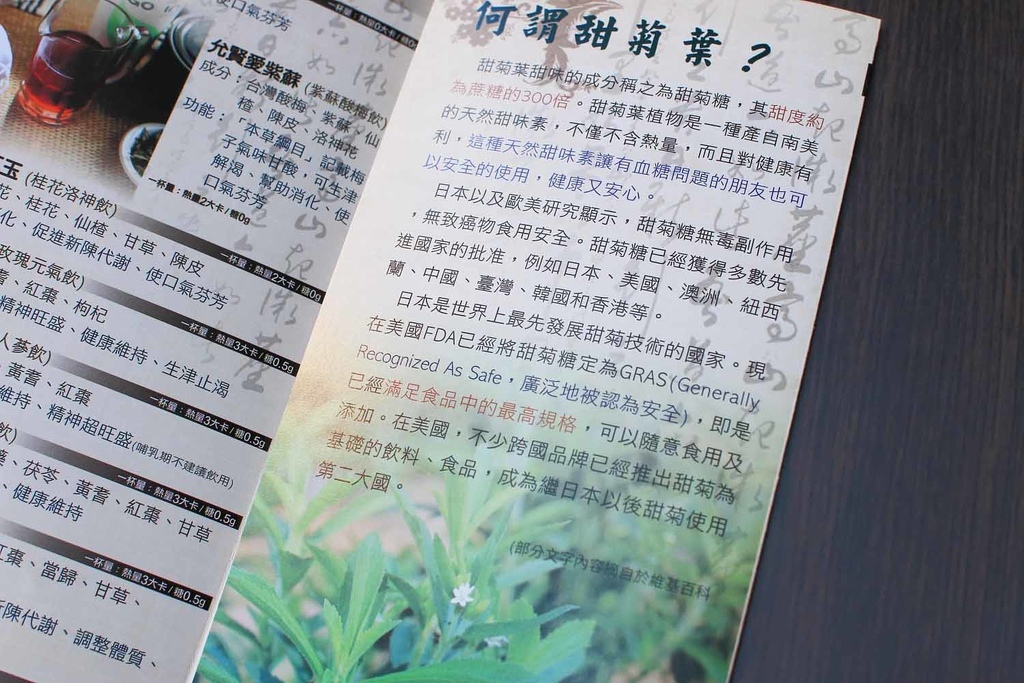 使口氣芬芳
一杯量：熱量0大卡/糖0g
允賢愛紫蘇(紫蘇酸梅飲)
成分：台灣酸梅、紫蘇、仙
楂、陳皮、洛神花
功能：「本草綱目」記載梅
子氣味甘酸，可生津
解渴、幫助消化、使
口氣芬芳
一杯量：熱量2大卡/糖0g
玉(桂花洛神飲)
花、桂花、仙楂、甘草、陳皮
化、促進新陳代謝、使口氣芬芳
一杯量：熱量2大卡/糖0g
玫瑰元氣飲)
耆、紅棗、枸杞
精神旺盛、健康維持、生津止渴
一杯量：熱量3大卡/糖0.5g
人蔘飲)
、黃耆、紅棗
維持、精神超旺盛(哺乳期不建議飲用)
一杯量：熱量3大卡/糖0.5g
飲)
藥、茯苓、黃耆、紅棗、甘草
、健康維持
一杯量：熱量3大卡/糖0.5g
紅棗、當歸、甘草、
新陳代謝、調整體質、
一杯量：熱量3大卡/糖0.5g
何謂甜菊葉？
甜菊葉甜味的成分稱之為甜菊糖，其甜度約
為蔗糖的300倍。甜菊葉植物是一種產自南美
的天然甜味素，不僅不含熱量，而且對健康有
利，這種天然甜味素讓有血糖問題的朋友也可
以安全的使用，健康又安心。
日本以及歐美研究顯示，甜菊糖無毒副作用
，無致癌物食用安全。甜菊糖已經獲得多數先
進國家的批准，例如日本、美國、澳洲、紐西
蘭、中國、臺灣、韓國和香港等。
日本是世界上最先發展甜菊技術的國家。現
在美國FDA已經將甜菊糖定為GRAS(Generally
Recognized As Safe，廣泛地被認為安全)，即是
已經滿足食品中的最高規格，可以隨意食用及
添加。在美國，不少跨國品牌已經推出甜菊為
基礎的飲料、食品，成為繼日本以後甜菊使用
第二大國。
(部分文字內容摘自於維基百科